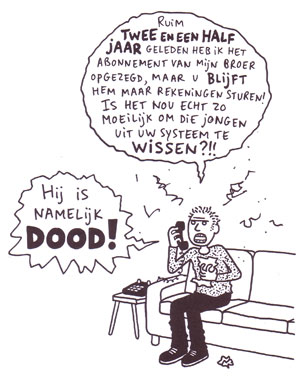 RUIM
TWEE EN EEN HALF
JAAR GELEDEN HEB IK HET
ABONNEMENT VAN MIJN BROER
OPGEZEGD, MAAR U BLIJFT
HEM MAAR REKENINGEN STUREN!
IS HET NOU ECHT ZO
MOEILIJK OM DIE JONGEN
UIT UW SYSTEEM TE
WISSEN?!!
HIJ IS
NAMELIJK
DOOD!